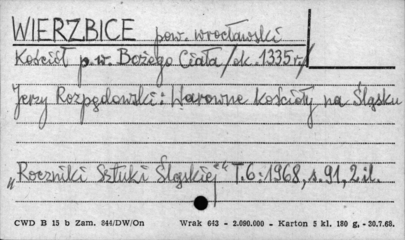 WIERZBICE pow. wrocławski
Kościół p.w. Bożego Ciała /ok. 1335 r./
Jerzy Rozpędowski: Warowne kościoły na Śląsku
„Roczniki Sztuki Śląskiej" T.6:1968, s.91, 2 il.
CWD B 15 b Zam. 844/DW/On Wrak 643 - 2.090.000 - Karton 5 kl. 180 g, - 30.7.68.